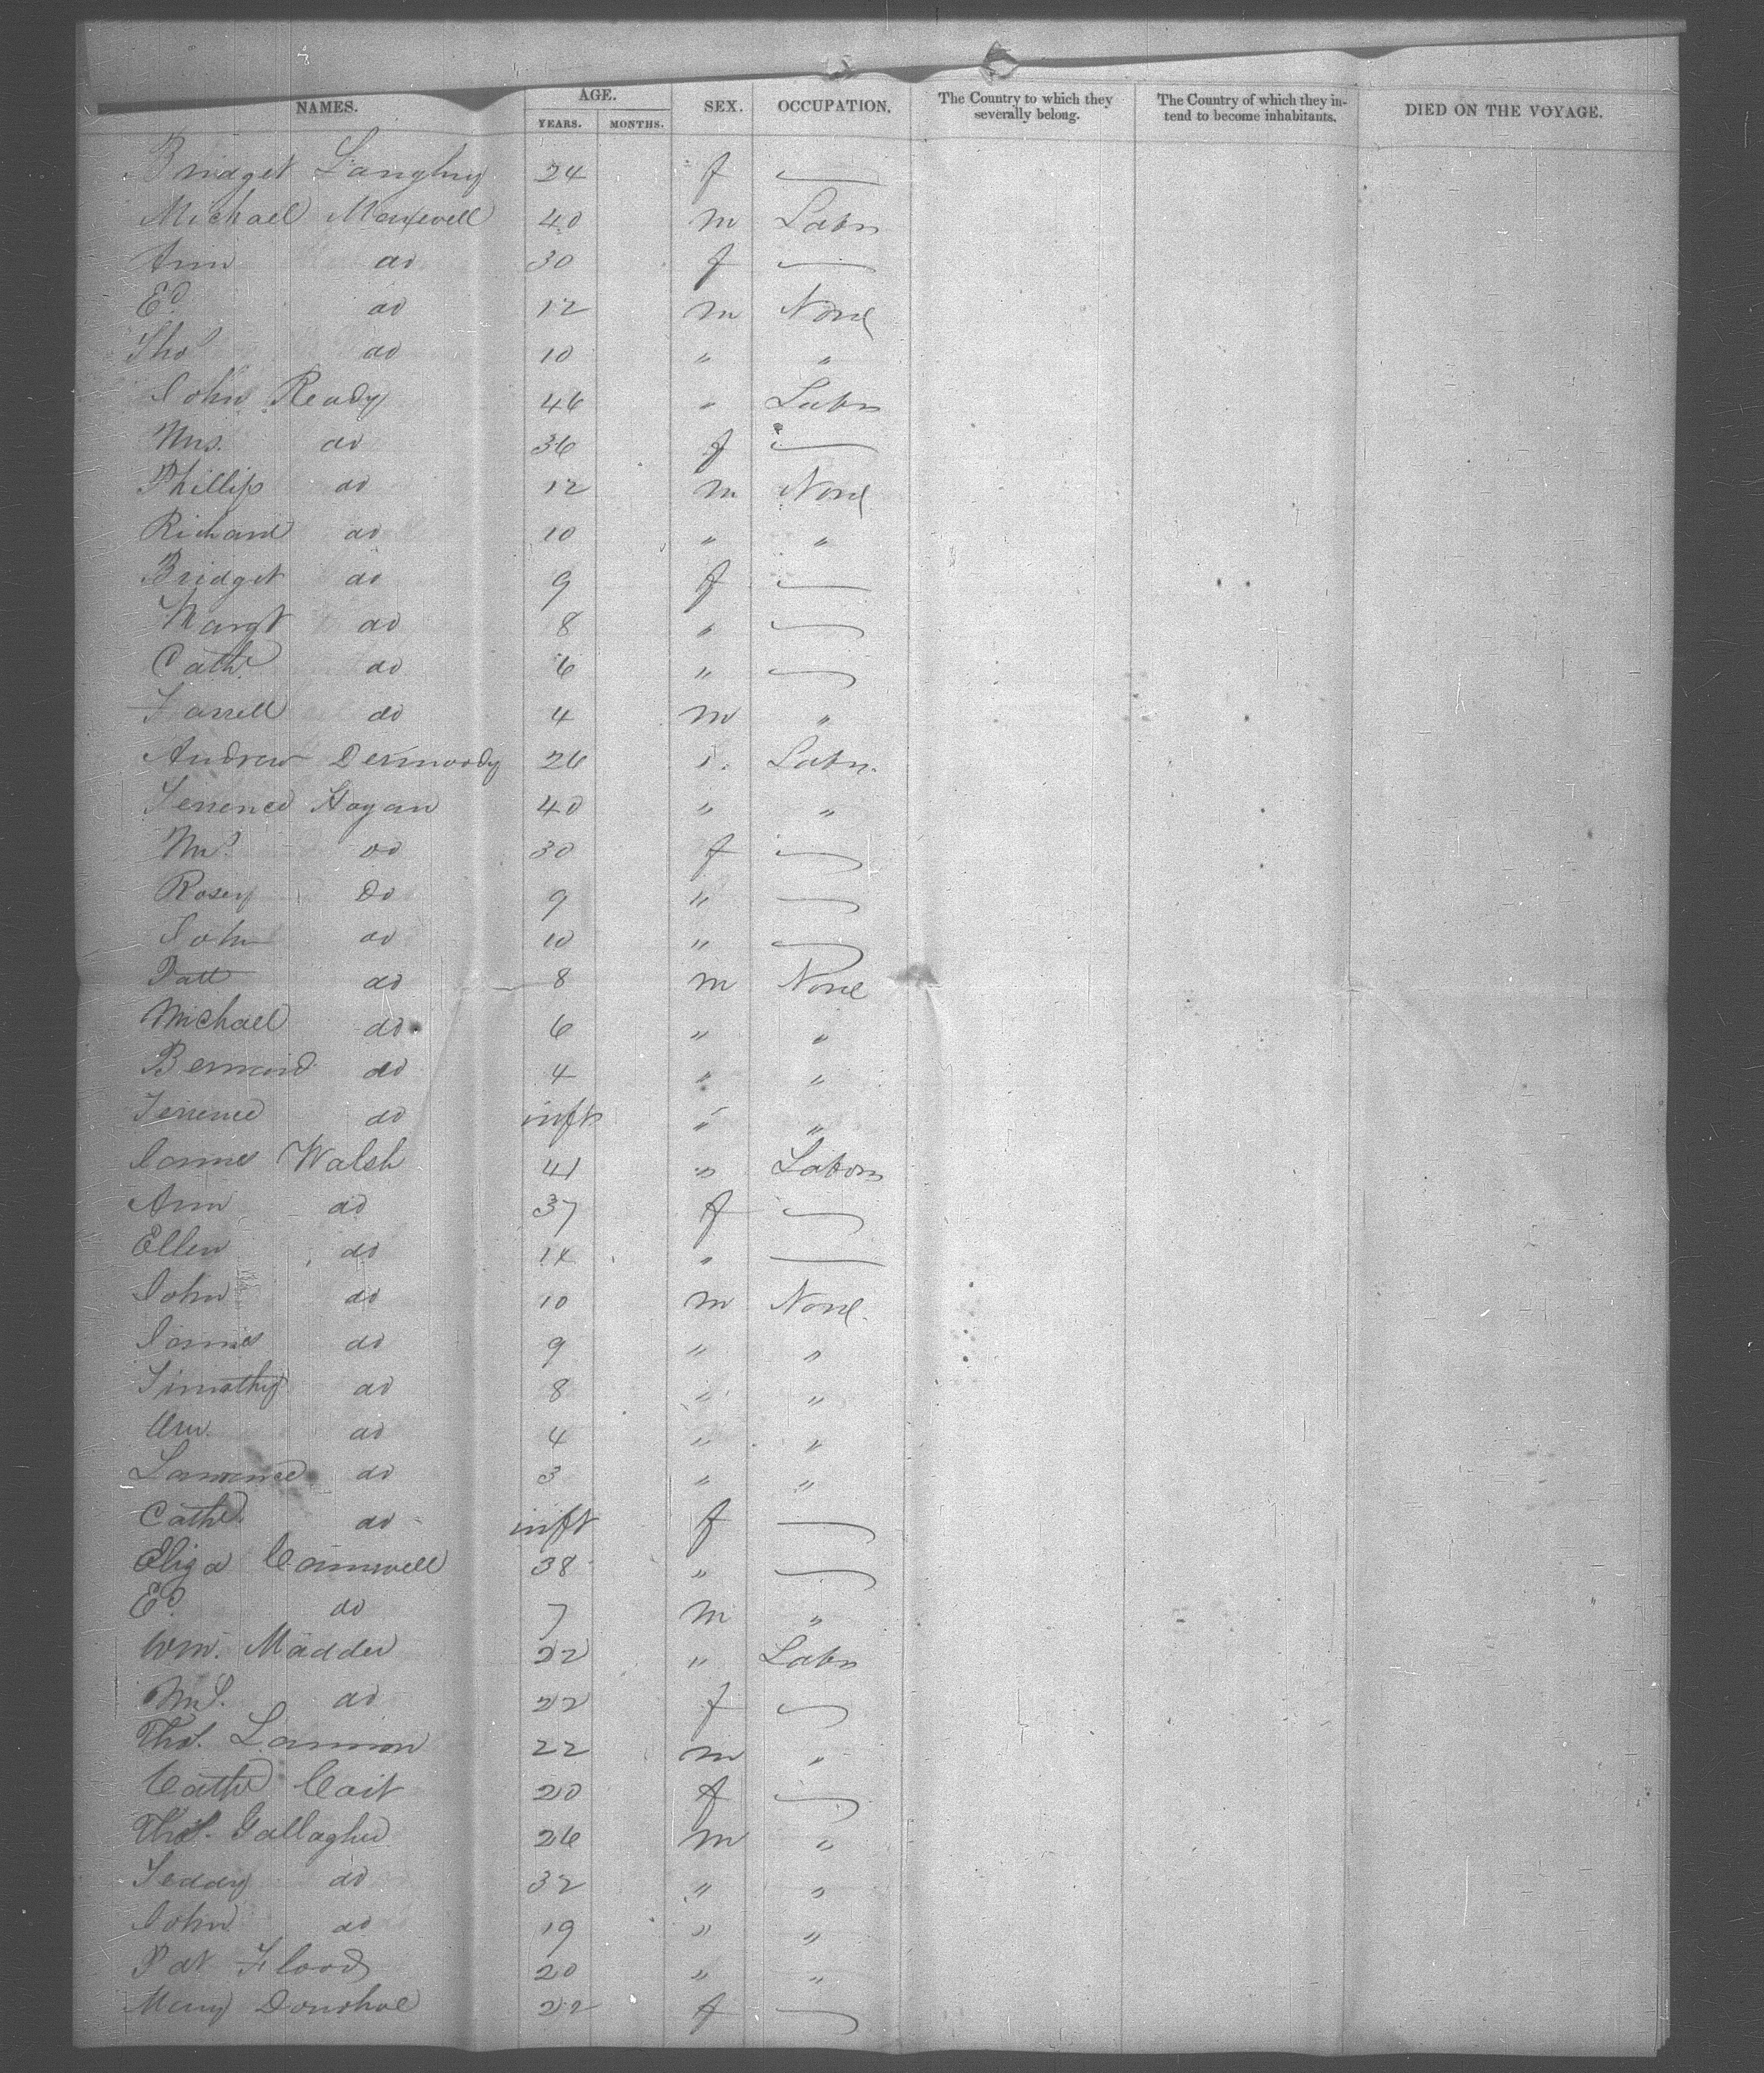 NAMES. AGE. SEX. OCCUPATION. The Country to which they severally belong. The Country of which they intend to become inhabitants. DIED ON THE VOYAGE.
YEARS. MONTHS.
Bridget Langhry 24 f —
Michael Maxwell 40 m Labr
Ann do 30 f —
Ed. do 12 m None
Thos do 10 " "
John Ready 46 " Labr
Mrs. do 36 f —
Phillip do 12 m None
Richard do 10 " "
Bridget do 9 f —
Margt do 8 " —
Cathe do 6 " —
Farrell do 4 m "
Andrew Dermody 26 " Labr.
Terrence Hogan 40 " "
Mrs. do 30 f —
Rosey Do 9 " —
John do 10 " —
Patt do 8 m None
Michael do 6 " "
Bernard do 4 " "
Terrence do inft " "
James Walsh 41 " Labor
Ann do 37 f —
Ellen do 14 " —
John do 10 m None.
James do 9 " "
Timothy do 8 " "
Wm. do 4 " "
Lawrence do 3 " "
Cathe do inft f —
Eliza Camwell 38 " —
Ed. do 7 m "
Wm. Madden 22 " Labr
Mrs. do 22 f —
Thos. Lannon 22 m "
Cathe Cait 20 f —
Thos. Gallagher 26 m "
Teddy do 32 " "
John do 19 " "
Pat Flood 20 " "
Mary Donohoe 22 f —